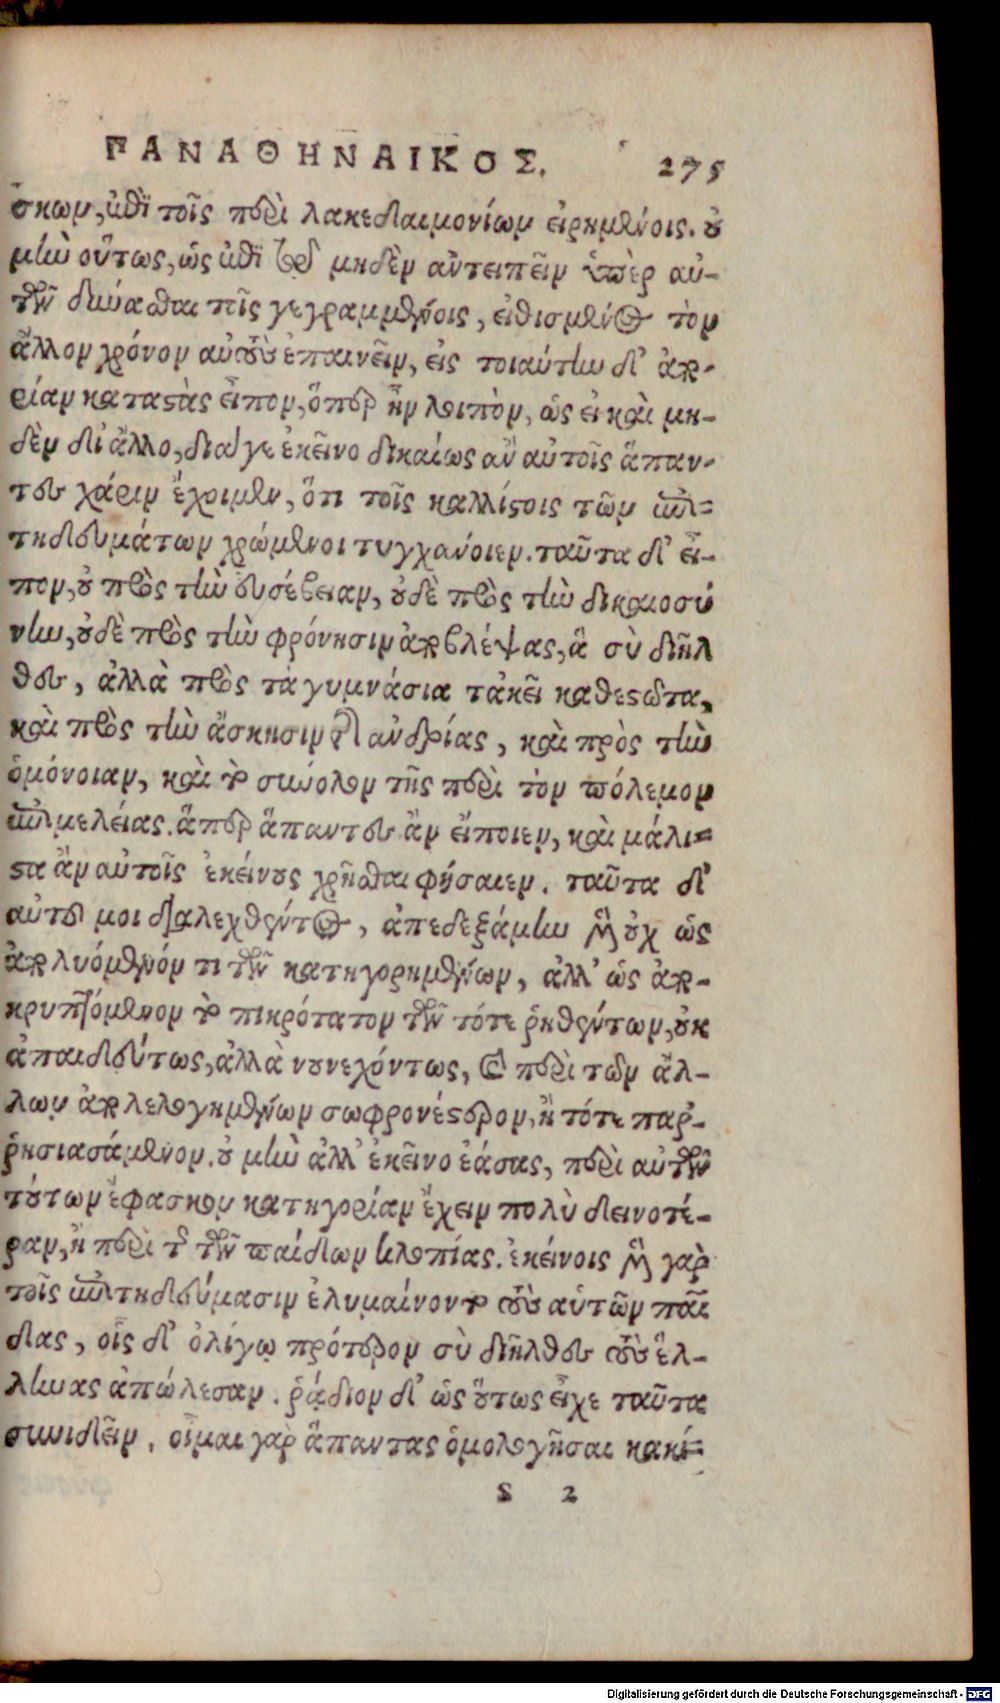 ΠΑΝΑΘΗΝΑΙΚΟΣ. 275
σκων, ἐπὶ τοῖς περὶ λακεδαιμονίων εἰρημένοις. οὐ
μὴν οὕτως, ὡς ἐπὶ τῷ μηδὲν ἀντειπεῖν ὑπὲρ αὐ-
τῶν δύνασθαι τοῖς γεγραμμένοις, εἰθισμένος τὸν
ἄλλον χρόνον αὐτοὺς ἐπαινεῖν, εἰς τοιαύτην δ' ἀπο-
ρίαν καταστὰς εἶπον, ὅπερ ἦν λοιπὸν, ὡς εἰ καὶ μη-
δὲν δι' ἄλλο, διά γε ἐκεῖνο δικαίως ἂν αὐτοῖς ἅπαν-
τες χάριν ἔχοιμεν, ὅτι τοῖς καλλίστοις τῶν ἐπι-
τηδευμάτων χρώμενοι τυγχανοιεν. ταῦτα δ' εἶ-
πον, οὐ πρὸς τὴν εὐσέβειαν, οὐδὲ πρὸς τὴν δικαιοσύ
νην, οὐδὲ πρὸς τὴν φρόνησιν ἀποβλέψας, ἃ σὺ διῆλ
θες, ἀλλὰ πρὸς τὰ γυμνάσια τἀκεῖ καθεστῶτα,
καὶ πρὸς τὴν ἄσκησιν τῆς ἀνδρίας, καὶ πρὸς τὴν
ὁμόνοιαν, καὶ τὸ σύνολον τῆς περὶ τὸν πόλεμον
ἐπιμελείας. ἅπερ ἅπαντες ἂν εἴποιεν, καὶ μάλι-
στα ἂν αὐτοῖς ἐκείνους χρῆσθαι φήσαιεν. ταῦτα δ'
αὐτοῦ μοι διαλεχθέντος, ἀπεδεξάμην μὲν οὐχ ὡς
ἀπολυόμενόν τι τῶν κατηγορημένων, ἀλλ' ὡς ἀπο-
κρυπτόμενον τὸ πικρότατον τῶν τότε ῥηθέντων, οὐκ
ἀπαιδεύτως, ἀλλὰ νουνεχόντως, καὶ περὶ τῶν ἄλ-
λων ἀπολελογημένων σωφρονέστερον, ἢ τότε παῤ-
ῥησιασάμενον. οὐ μὴν ἀλλ' ἐκεῖνο ἐάσας, περὶ αὐτῶν
τούτων ἔφασκον κατηγορίαν ἔχειν πολὺ δεινοτέ-
ραν, ἢ περὶ τῆς τῶν παίδων κλοπίας. ἐκείνοις μὲν γὰρ
τοῖς ἐπιτηδεύμασιν ἐλυμαίνοντο τοὺς αὑτῶν παῖ
δας, οἷς δ' ὀλίγῳ πρότερον σὺ διῆλθες τοὺς ἕλ-
ληνας ἀπώλεσαν. ῥᾴδιον δ' ὡς οὕτως εἶχε ταῦτα
συνιδεῖν. οἶμαι γὰρ ἅπαντας ὁμολογῆσαι κακί-
S 2
Digitalisierung gefördert durch die Deutsche Forschungsgemeinschaft - DFG